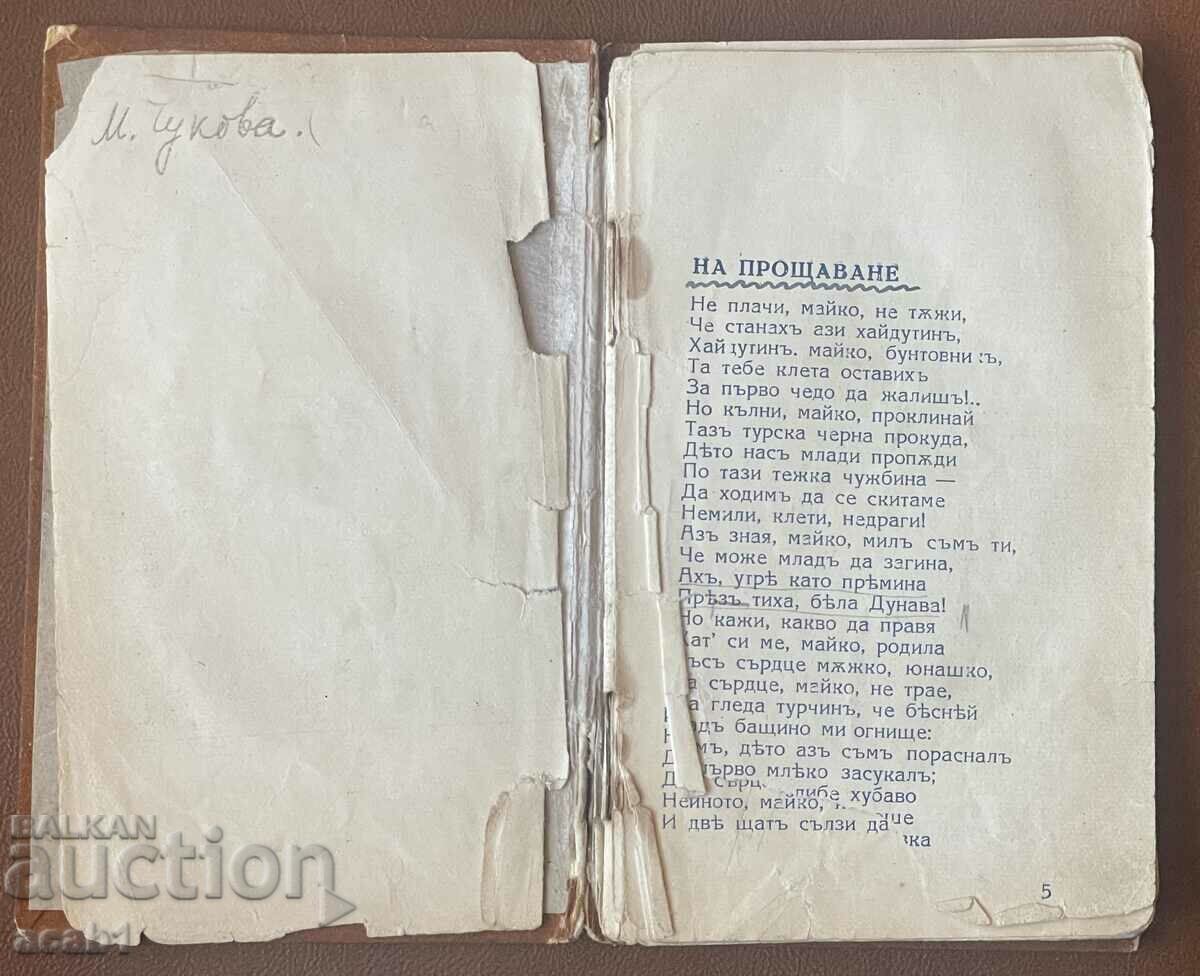 М. Чукова.
НА ПРОЩАВАНЕ
Не плачи, майко, не тѫжи,
Че станахъ ази хайдутинъ,
Хайдутинъ. майко, бунтовникъ,
Та тебе клета оставихъ
За първо чедо да жалишъ!..
Но кълни, майко, проклинай
Тазъ турска черна прокуда,
Дѣто насъ млади пропѫди
По тази тежка чужбина —
Да ходимъ да се скитаме
Немили, клети, недраги!
Азъ зная, майко, милъ съмъ ти,
Че може младъ да загина,
Ахъ, утрѣ като прѣмина
Прѣзъ тиха, бѣла Дунава!
Но кажи, какво да правя
Кат' си ме, майко, родила
ъсъ сърдце мѫжко, юнашко,
а сърдце, майко, не трае,
а гледа турчинъ, че бѣснѣй
адъ бащино ми огнище:
мъ, дѣто азъ съмъ порасналъ
първо млѣко засукалъ;
либе хубаво
Нейното, майко,
И двѣ щатъ сълзи да
5
BALKAN
auction
acab1